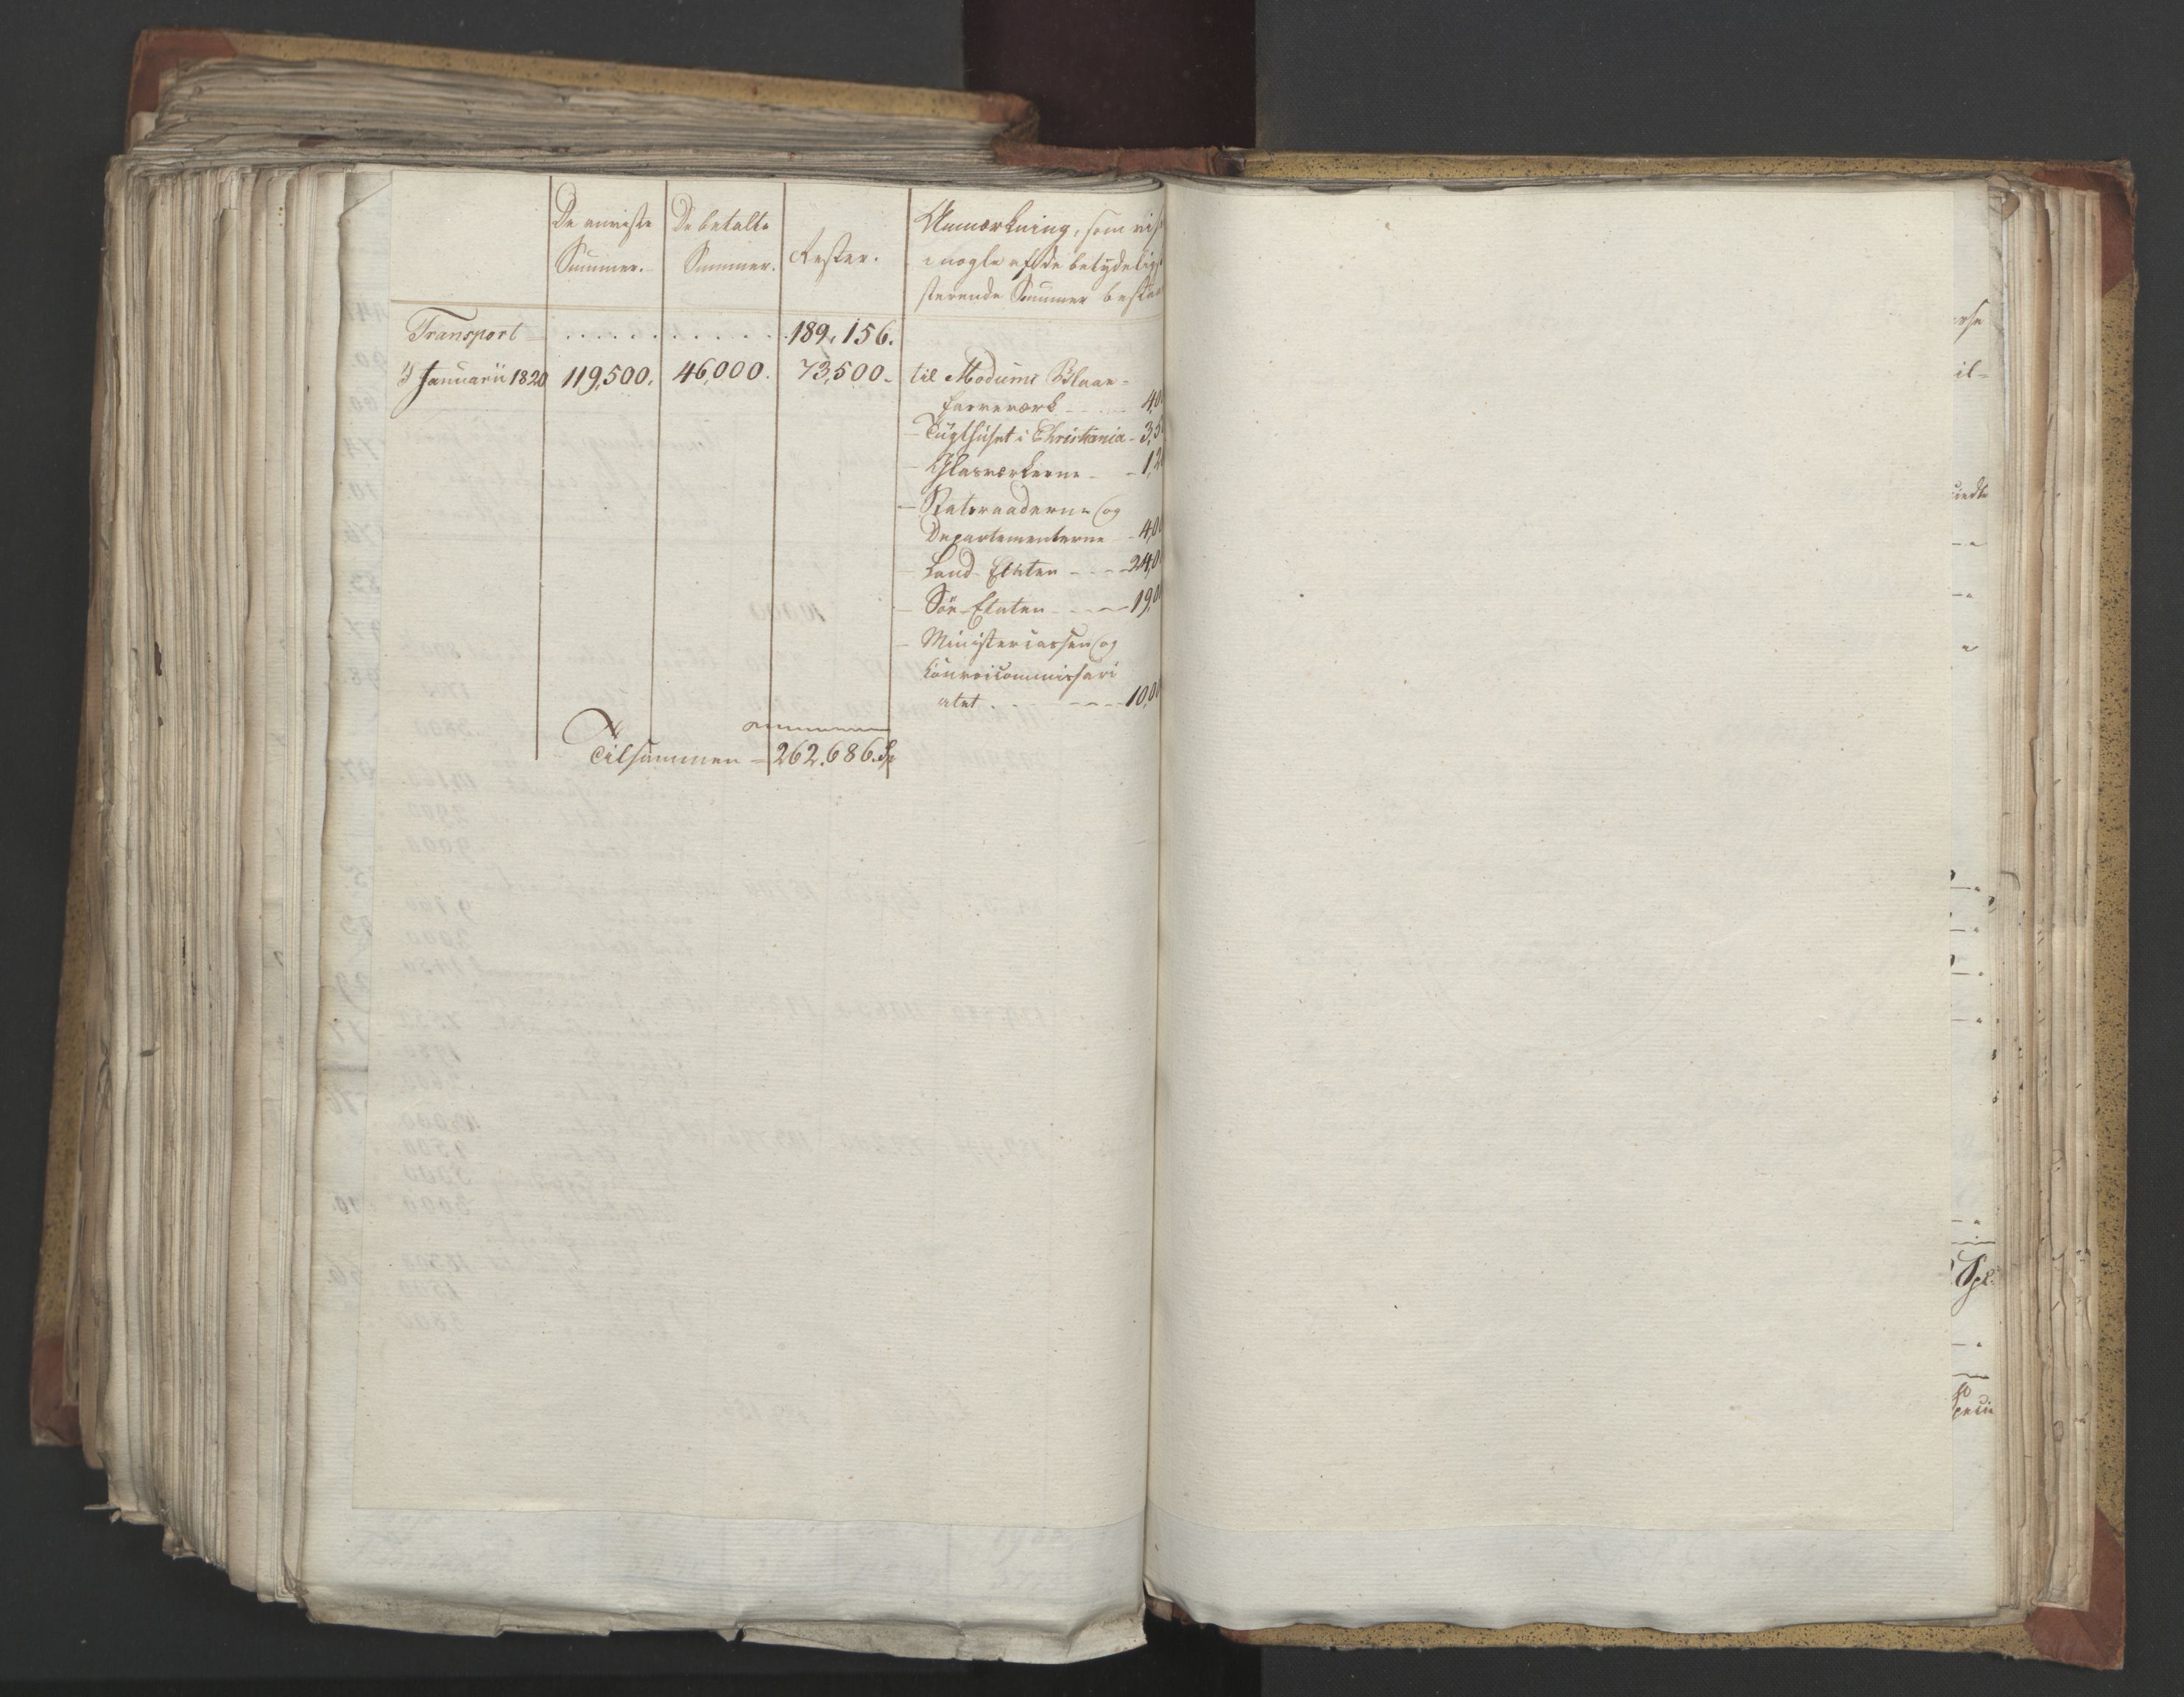 De anviste Summer.
De betalte Summer.
Rester.
Anmærkning, som vis
i nogle af de betydelig
sterende Summer bestaa
Transport . . . . . . . . . . . 189,156.
Januarii 1820 119,500. 46,000. 73,500.
til Modums Blaae-
farveværk - - - - 4,0
- Tugthuset i Christiania - 3,5
- Glasværkerne - - 1,2
- Statsraaderne og
Departementerne - 4,0
- Land-Etaten - - - 24,0
- Söe-Etaten - - - - 19,0
- Ministercassen og
Convoicommissari
atet . - - - - 10,0
Tilsammen = 262,686. Sp
il-
Spl.
Specie